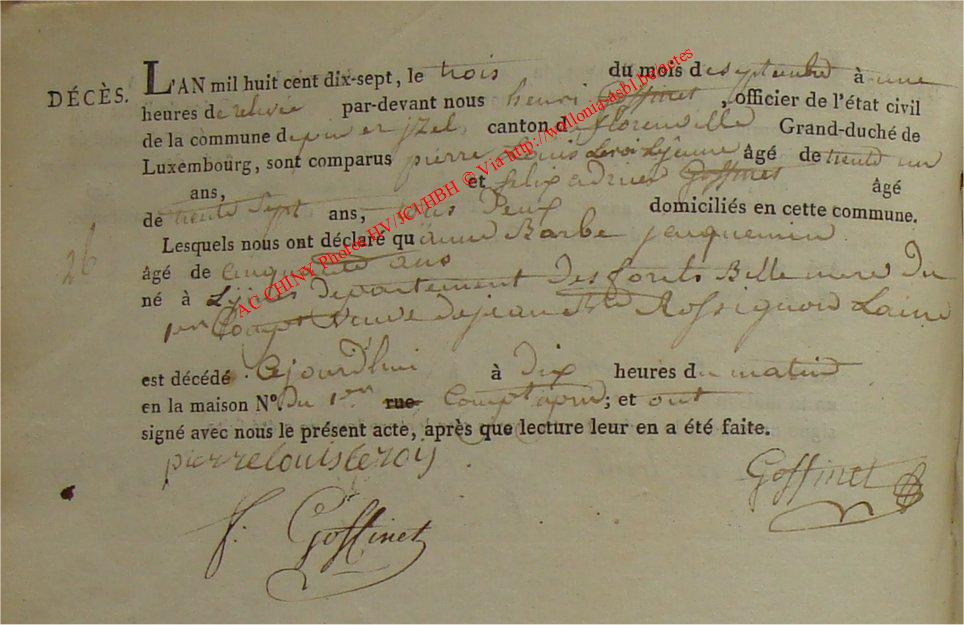 DÉCÈS. L'AN mil huit cent dix-sept, le trois du mois de septembre à une
heures de relevée par-devant nous henri Goffinet, officier de l'état civil
de la commune de jzel, canton de florenville Grand-duché de
Luxembourg, sont comparus pierre Louis Leroi Lejeune âgé de trente un
ans, et felix adrien Goffinet âgé
de trente sept ans, tous Deux domiciliés en cette commune.
26 Lesquels nous ont déclaré qu'anne Barbe jacquemin
âgé de cinquante ans
né à departement des forets Belle mere du
1er Compt veuve de jean Bte Rossignon Lainé
est décédé ajourd'hui à dix heures du matin
en la maison N°. du 1er rue Compt; et ont
signé avec nous le présent acte, après que lecture leur en a été faite.
pierrelouisleroy
Goffinet
f. Goffinet
AC CHINY Photos HV/JCI/HBH © Via http://wallonia-asbl.be/actes